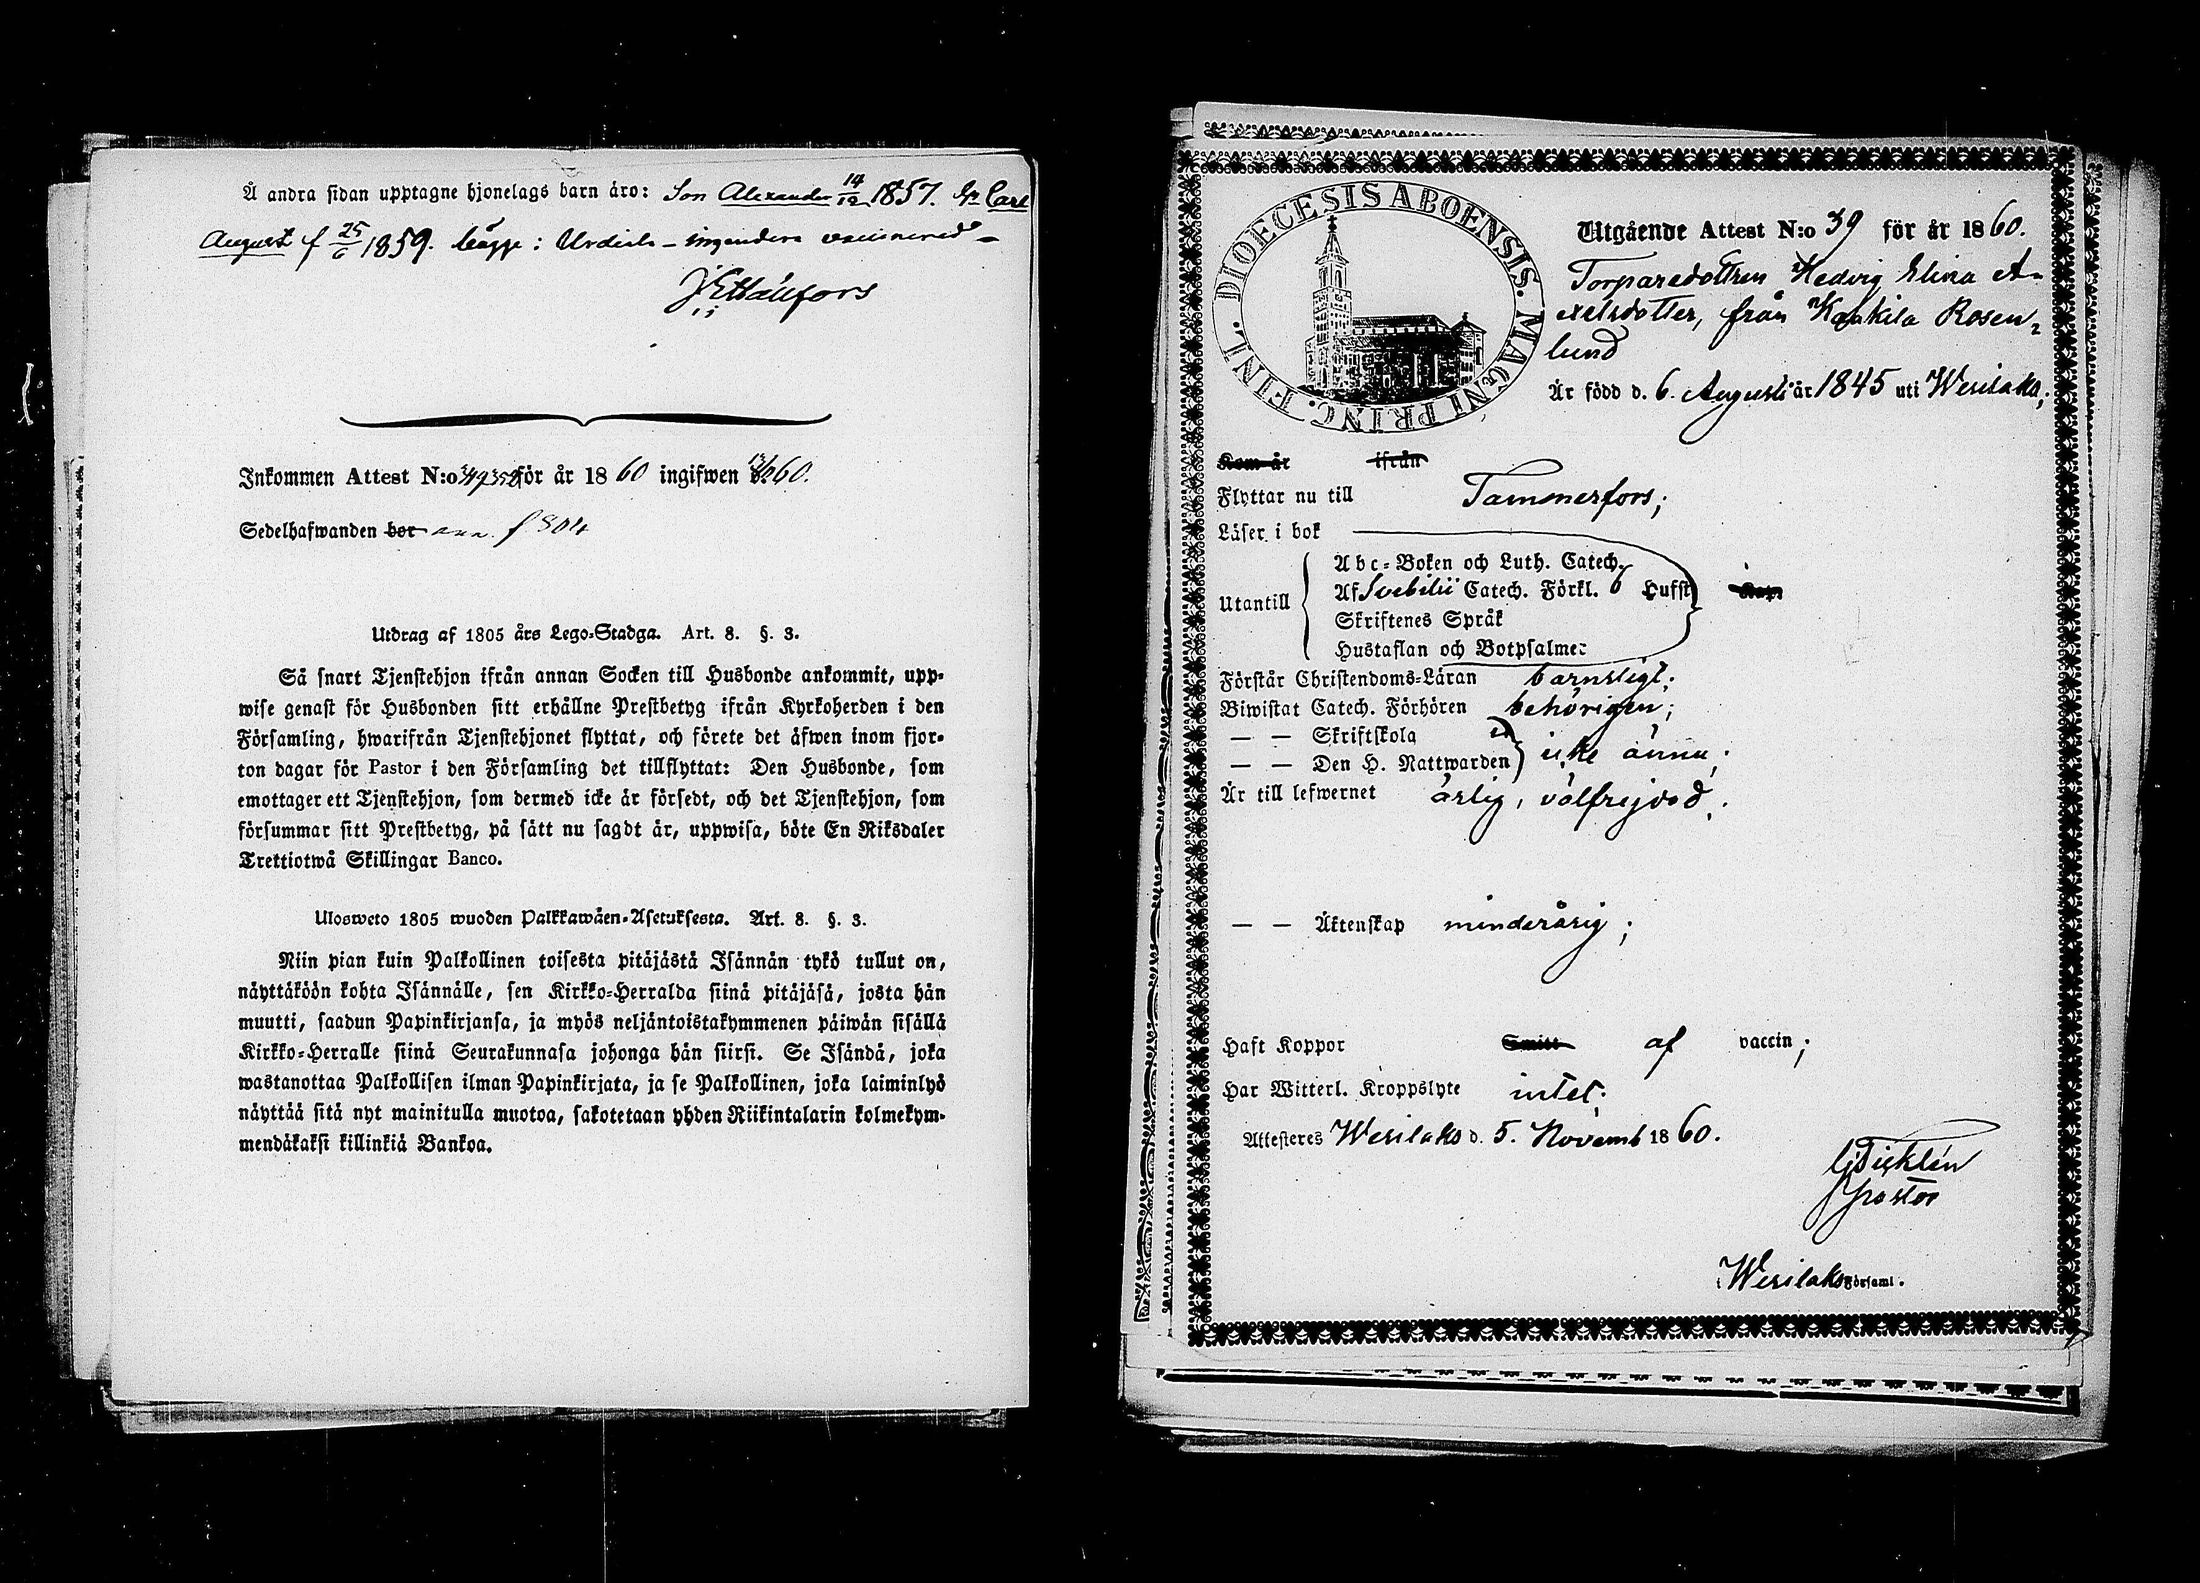 Å andra sidan upptagne hjonelags barn äro: Son Alexander 14/12 1857. & Carl
August f 25/6 1859. bägge: Urdiala - ingendera vaccinerad -
Inkommen Attest N:o 349 358 för år 1860 ingifwen 60.
Sedelhafwanden bor ann. f 304
Utdrag af 1805 års Lego-Stadga. Art. 8. §. 3.
Så snart Tjenstehjon ifrån annan Socken till Husbonde ankommit, upp-
wise genast för Husbonden sitt erhållne Prestbetyg ifrån Kyrkoherden i den
Församling, hwarifrån Tjenstehjonet flyttat, och förete det äfwen inom fjor-
ton dagar för Pastor i den Församling det tillflyttat: Den Husbonde, som
emottager ett Tjenstehjon, som dermed icke är försedt, och det Tjenstehjon, som
försummar sitt Prestbetyg, på sätt nu sagdt är, uppwisa, böte En Riksdaler
Trettiotwå Skillingar Banco.
Ulosweto 1805 wuoden Palkkawäen-Asetuksesta. Art. 8. §. 3.
Niin pian kuin Palkollinen toisesta pitäjästä Isännän tykö tullut on,
näyttäköön kohta Isännälle, sen Kirkko-Herralda siinä pitäjäsä, josta hän
muutti, saadun Papinkirjansa, ja myös neljäntoistakymmenen päiwän sisällä
Kirkko-Herralle siinä Seurakunnasa johonga hän siirsi. Se Isändä, joka
wastanottaa Palkollisen ilman Papinkirjata, ja se Palkollinen, joka laiminlyö
näyttää sitä nyt mainitulla muotoa, sakotetaan yhden Riikintalarin kolmekym-
mendäkaksi killinkiä Bankoa.
FINL. DIOECESIS ABOENSIS. MAGNI PRINC.
Utgående Attest N:o 39 för år 1860.
Torparedottren Hedvig Elina A-
exelsdotter, från Kaukila Rosen-
lund
Är född d. 6. Augusti år 1845 uti Wesilaks;
Kom år ifrån
Flyttar nu till Tammerfors;
Läser i bok
Utantill
Abc-Boken och Luth. Catech.
Af Svebilii Catech. Förkl. 6 Hufst. Kap
Skriftenes Språk
Hustaflan och Botpsalmer
Förstår Christendoms-Läran barnsligt;
Biwistat Catech. Förhören behörigen;
— — Skriftskola
— — Den H. Nattwarden icke ännu;
Är till lefwernet ärlig, välfrejdad;
— — Äktenskap minderårig;
Haft Koppor Smitt af vaccin;
Har Witterl. Kroppslyte intet;
Attesteres Wesilaks d. 5. Novemb 1860.
Pastor
Wesilaks Församl.